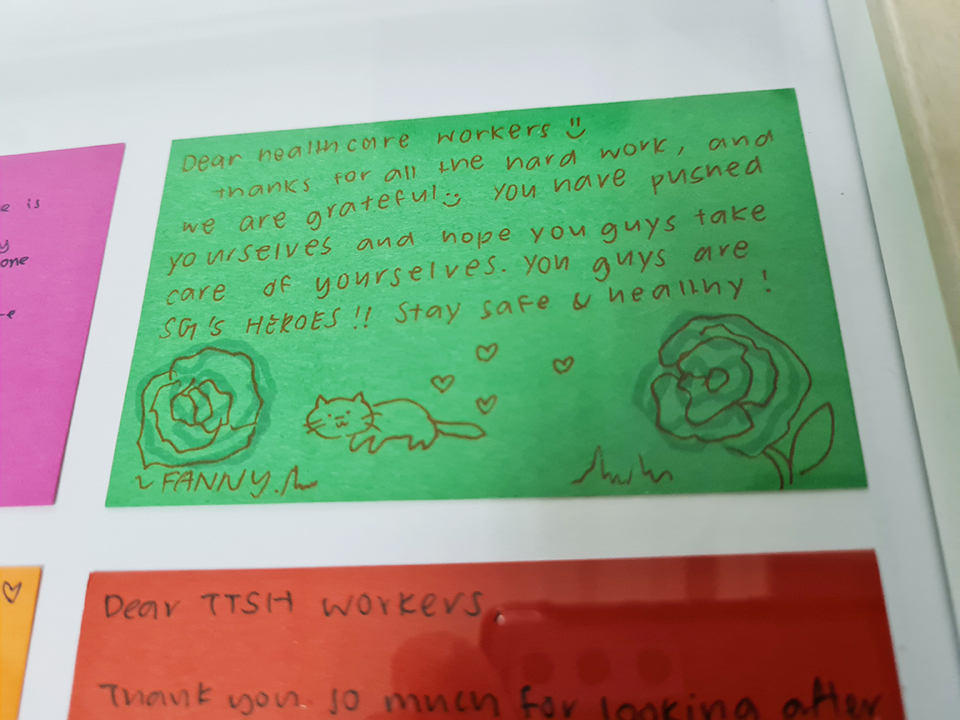 Dear healthcare workers
thanks for all the hard work, and
we are grateful! You have pushed
yourselves and hope you guys take
care of yourselves. You guys are
SG's HEROES!! Stay safe & healthy!
~ FANNY.
e is
y
one
e
Dear TTSH workers,
Thank you so much for looking after